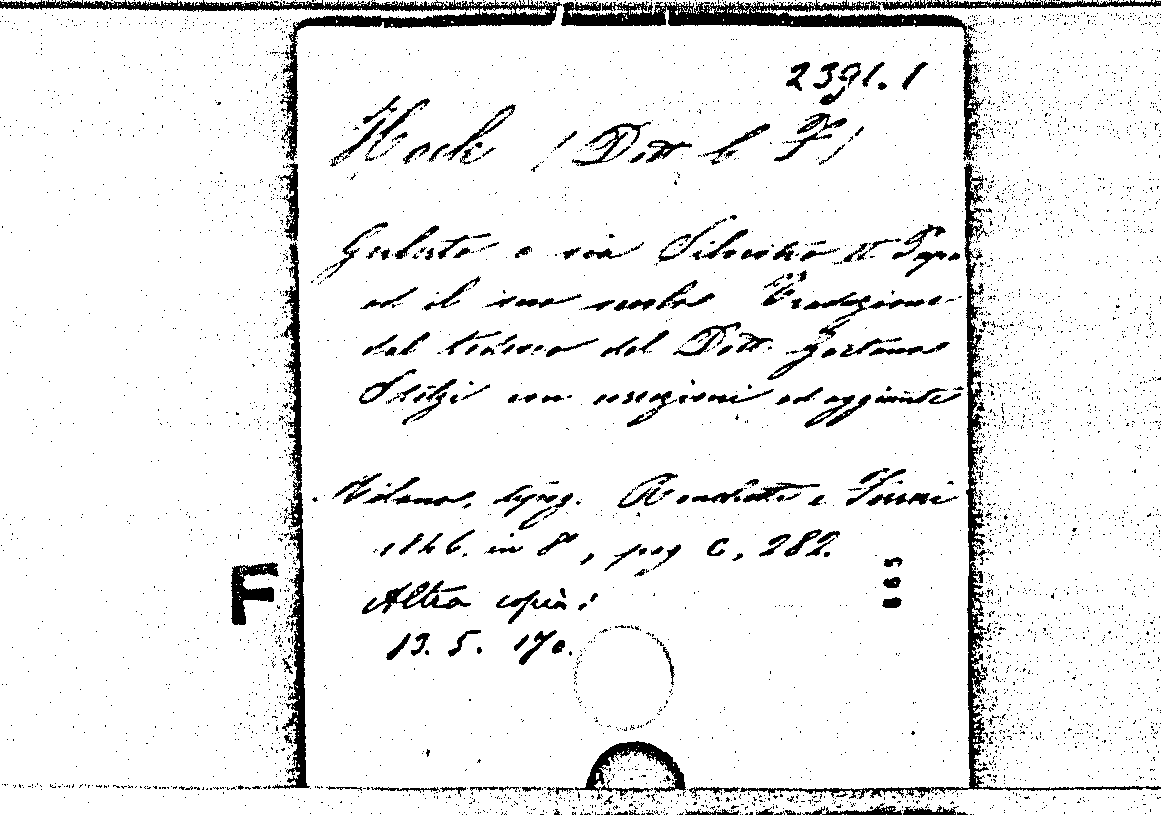 2391.1
Hock (Dott. C. F)
Gerberto o sia Silvestro II Papa
ed il suo secolo Traduzione
dal tedesco del Dott. Gaetano
Stelzi con correzioni ed aggiunte
Milano, typog. Ronchetti e Ferreri
1846. in 8°, pag C, 282.
Altra copia:
13. 5. 170.
F